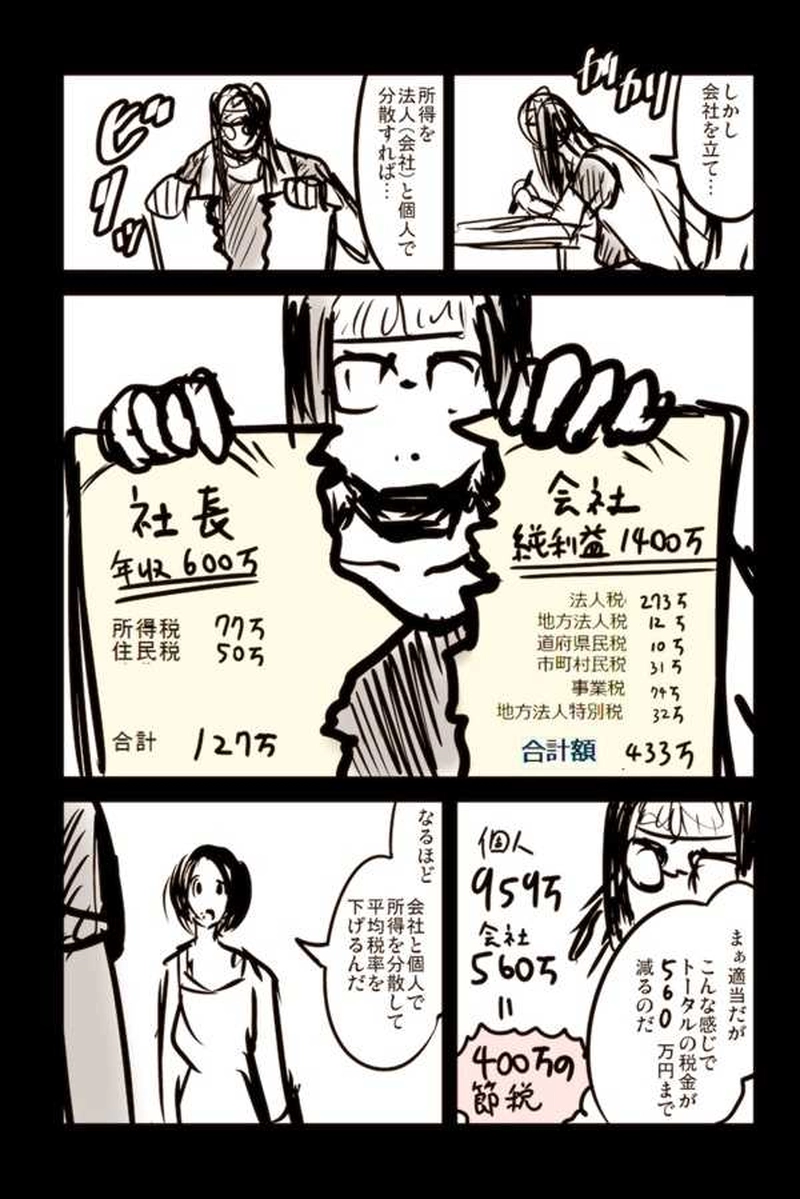 しかし
会社を立て…
ガリガリ
所得を
法人(会社)と個人で
分散すれば…
ビリリッ
会社
純利益 1400万
法人税 273万
地方法人税 12万
道府県民税 10万
市町村民税 31万
事業税 74万
地方法人特別税 32万
合計額 433万
社長
年収 600万
所得税 77万
住民税 50万
合計 127万
まぁ適当だが
こんな感じで
トータルの税金が
560万円まで
減るのだ
個人
959万
会社
560万
=
400万の
節税
なるほど
会社と個人で
所得を分散して
平均税率を
下げるんだ